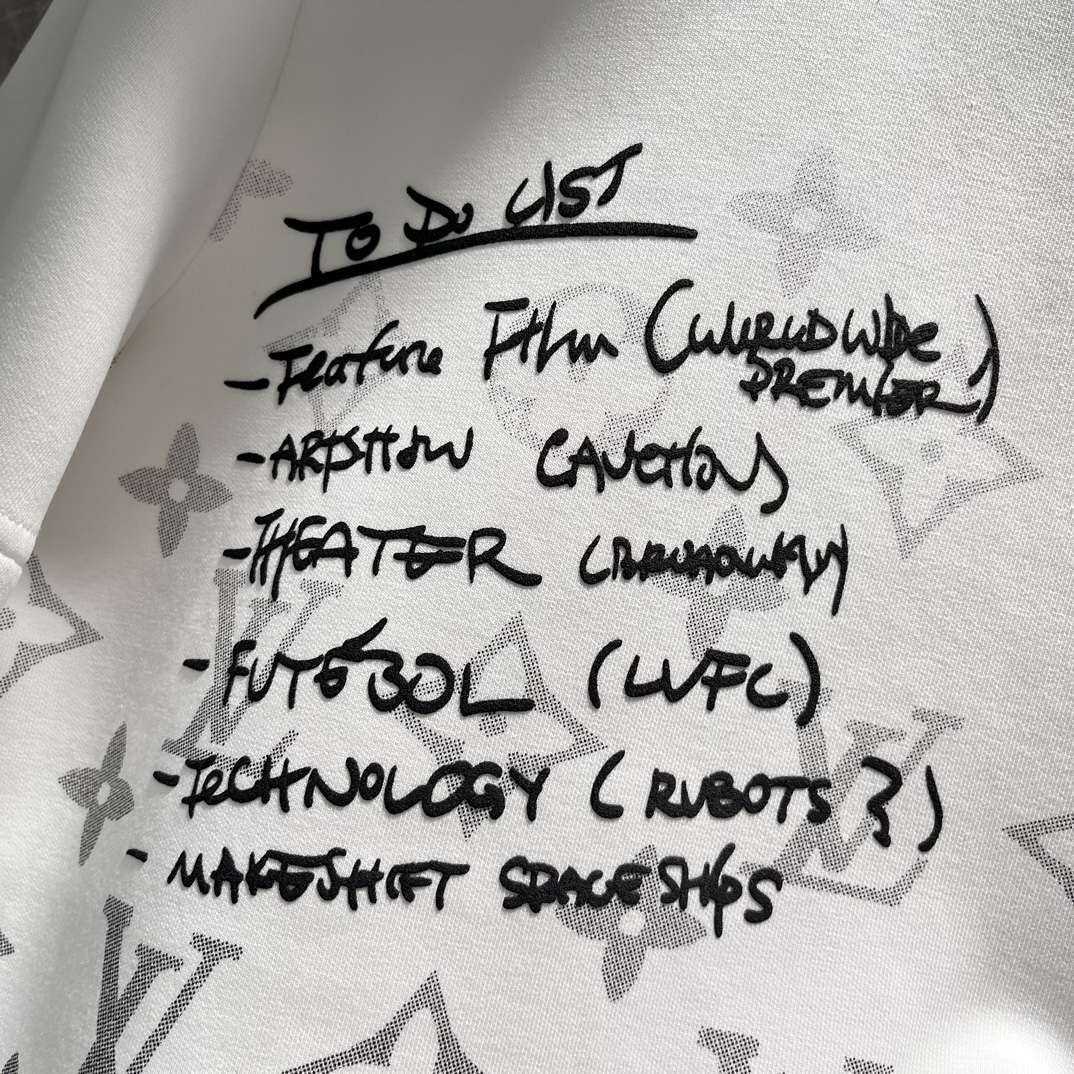 TO DO LIST
- Feature Film (WORLDWIDE
PREMIER)
- ARTSHOW
- THEATER (BROADWAY)
- FUTEBOL (LVFC)
- TECHNOLOGY (ROBOTS })
- MAKESHIFT SPACESHIPS
LV
LV
LV